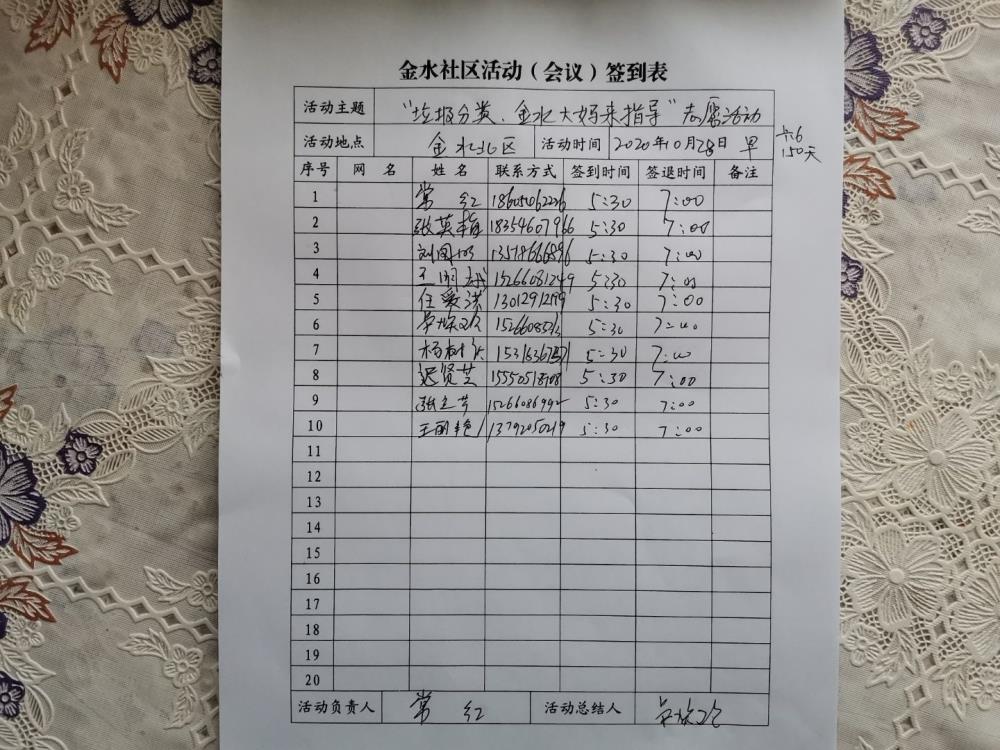 金水社区活动（会议）签到表
活动主题 “垃圾分类、金水大妈来指导”志愿活动
活动地点 金水北区 活动时间 2020年10月28日 早
150天
序号 网名 姓名 联系方式 签到时间 签退时间 备注
1 常红 5:30 7:00
2 张英梅 18354607966 5:30 7:00
3 5:30 7:00
4 15266081249 5:30 7:00
5 任爱洪 5:30 7:00
6 5:30 7:00
7 5:30 7:00
8 迟贤芝 5:30 7:00
9 15266086992 5:30 7:00
10 王丽艳 13792050219 5:30 7:00
11
12
13
14
15
16
17
18
19
20
活动负责人 常红 活动总结人